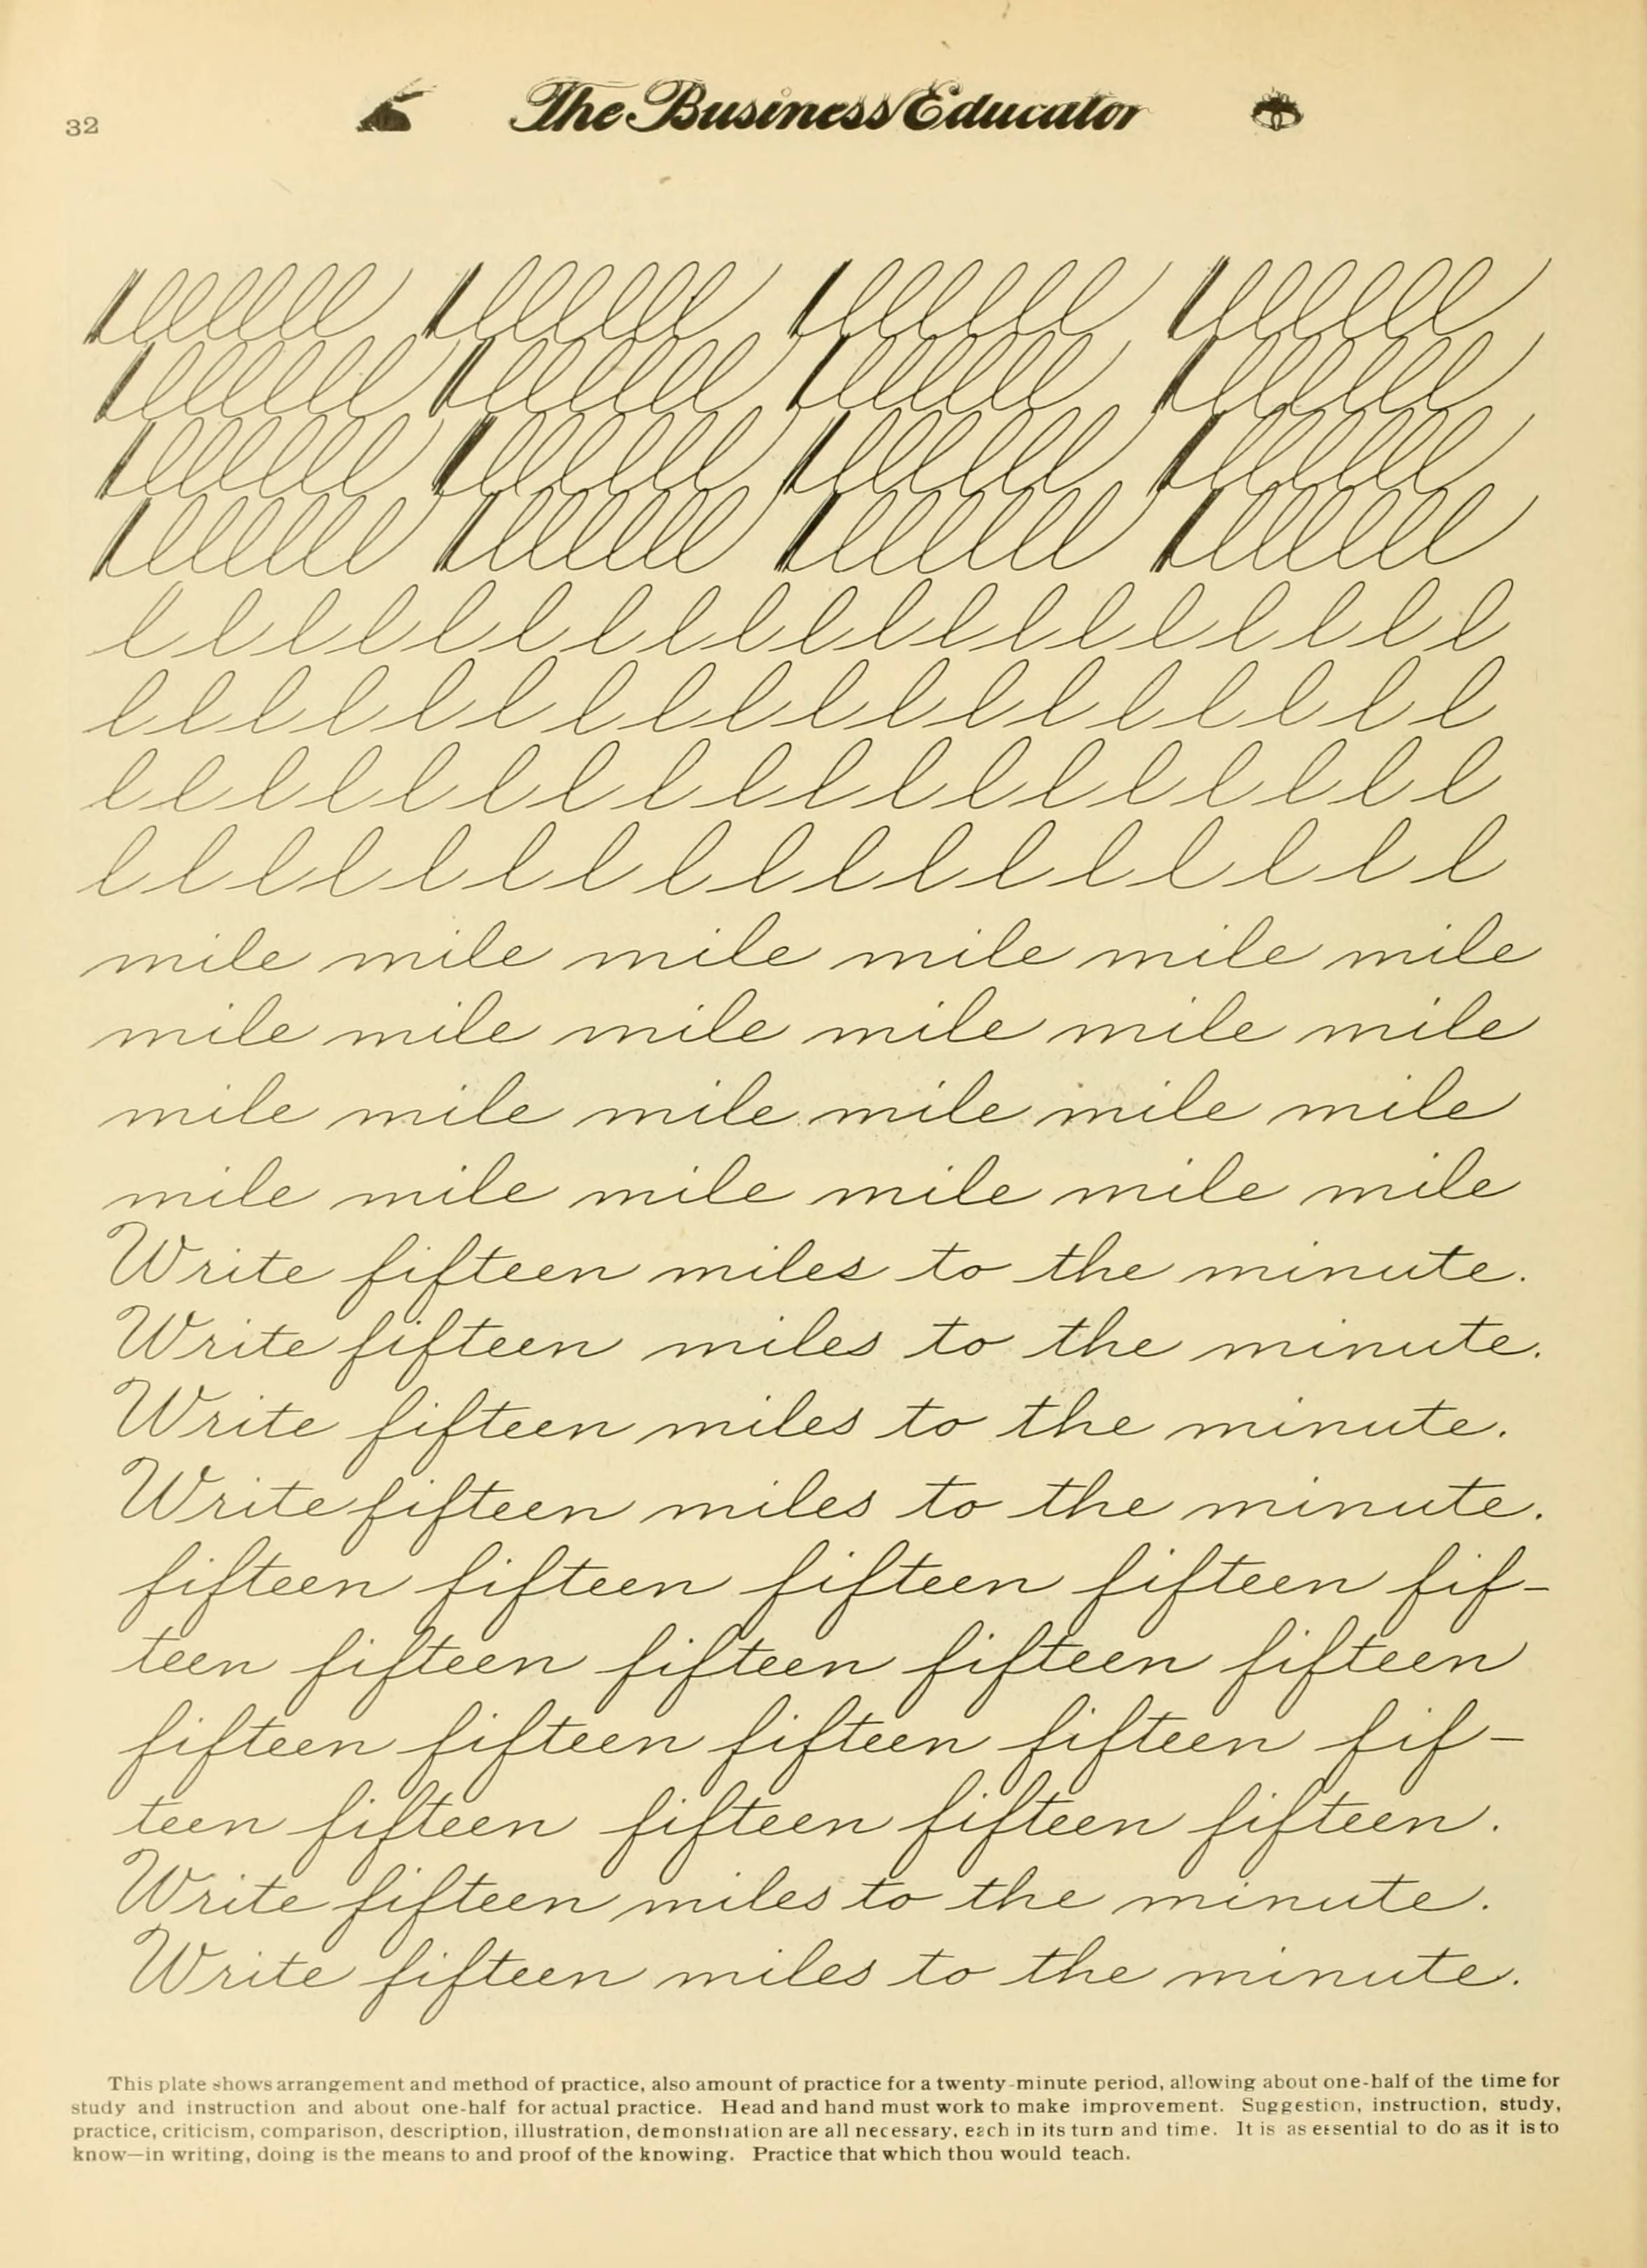 32
The Business Educator
lllllll lllllll lllllll lllllll
lllllll lllllll lllllll lllllll
lllllll lllllll lllllll lllllll
lllllll lllllll lllllll lllllll
l l l l l l l l l l l l l l l l l l
l l l l l l l l l l l l l l l l l l
l l l l l l l l l l l l l l l l l l
l l l l l l l l l l l l l l l l l
mile mile mile mile mile mile
mile mile mile mile mile mile
mile mile mile mile mile mile
mile mile mile mile mile mile
Write fifteen miles to the minute.
Write fifteen miles to the minute.
Write fifteen miles to the minute.
Write fifteen miles to the minute.
fifteen fifteen fifteen fifteen fif-
teen fifteen fifteen fifteen fifteen
fifteen fifteen fifteen fifteen fif-
teen fifteen fifteen fifteen fifteen.
Write fifteen miles to the minute.
Write fifteen miles to the minute.
This plate shows arrangement and method of practice, also amount of practice for a twenty-minute period, allowing about one-half of the time for
study and instruction and about one-half for actual practice. Head and hand must work to make improvement. Suggestion, instruction, study,
practice, criticism, comparison, description, illustration, demonstration are all necessary, each in its turn and time. It is as essential to do as it is to
know—in writing, doing is the means to and proof of the knowing. Practice that which thou would teach.